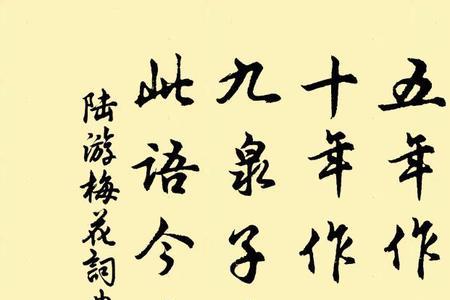 五年作
十年作
九泉子
此語今
陸游梅花詞